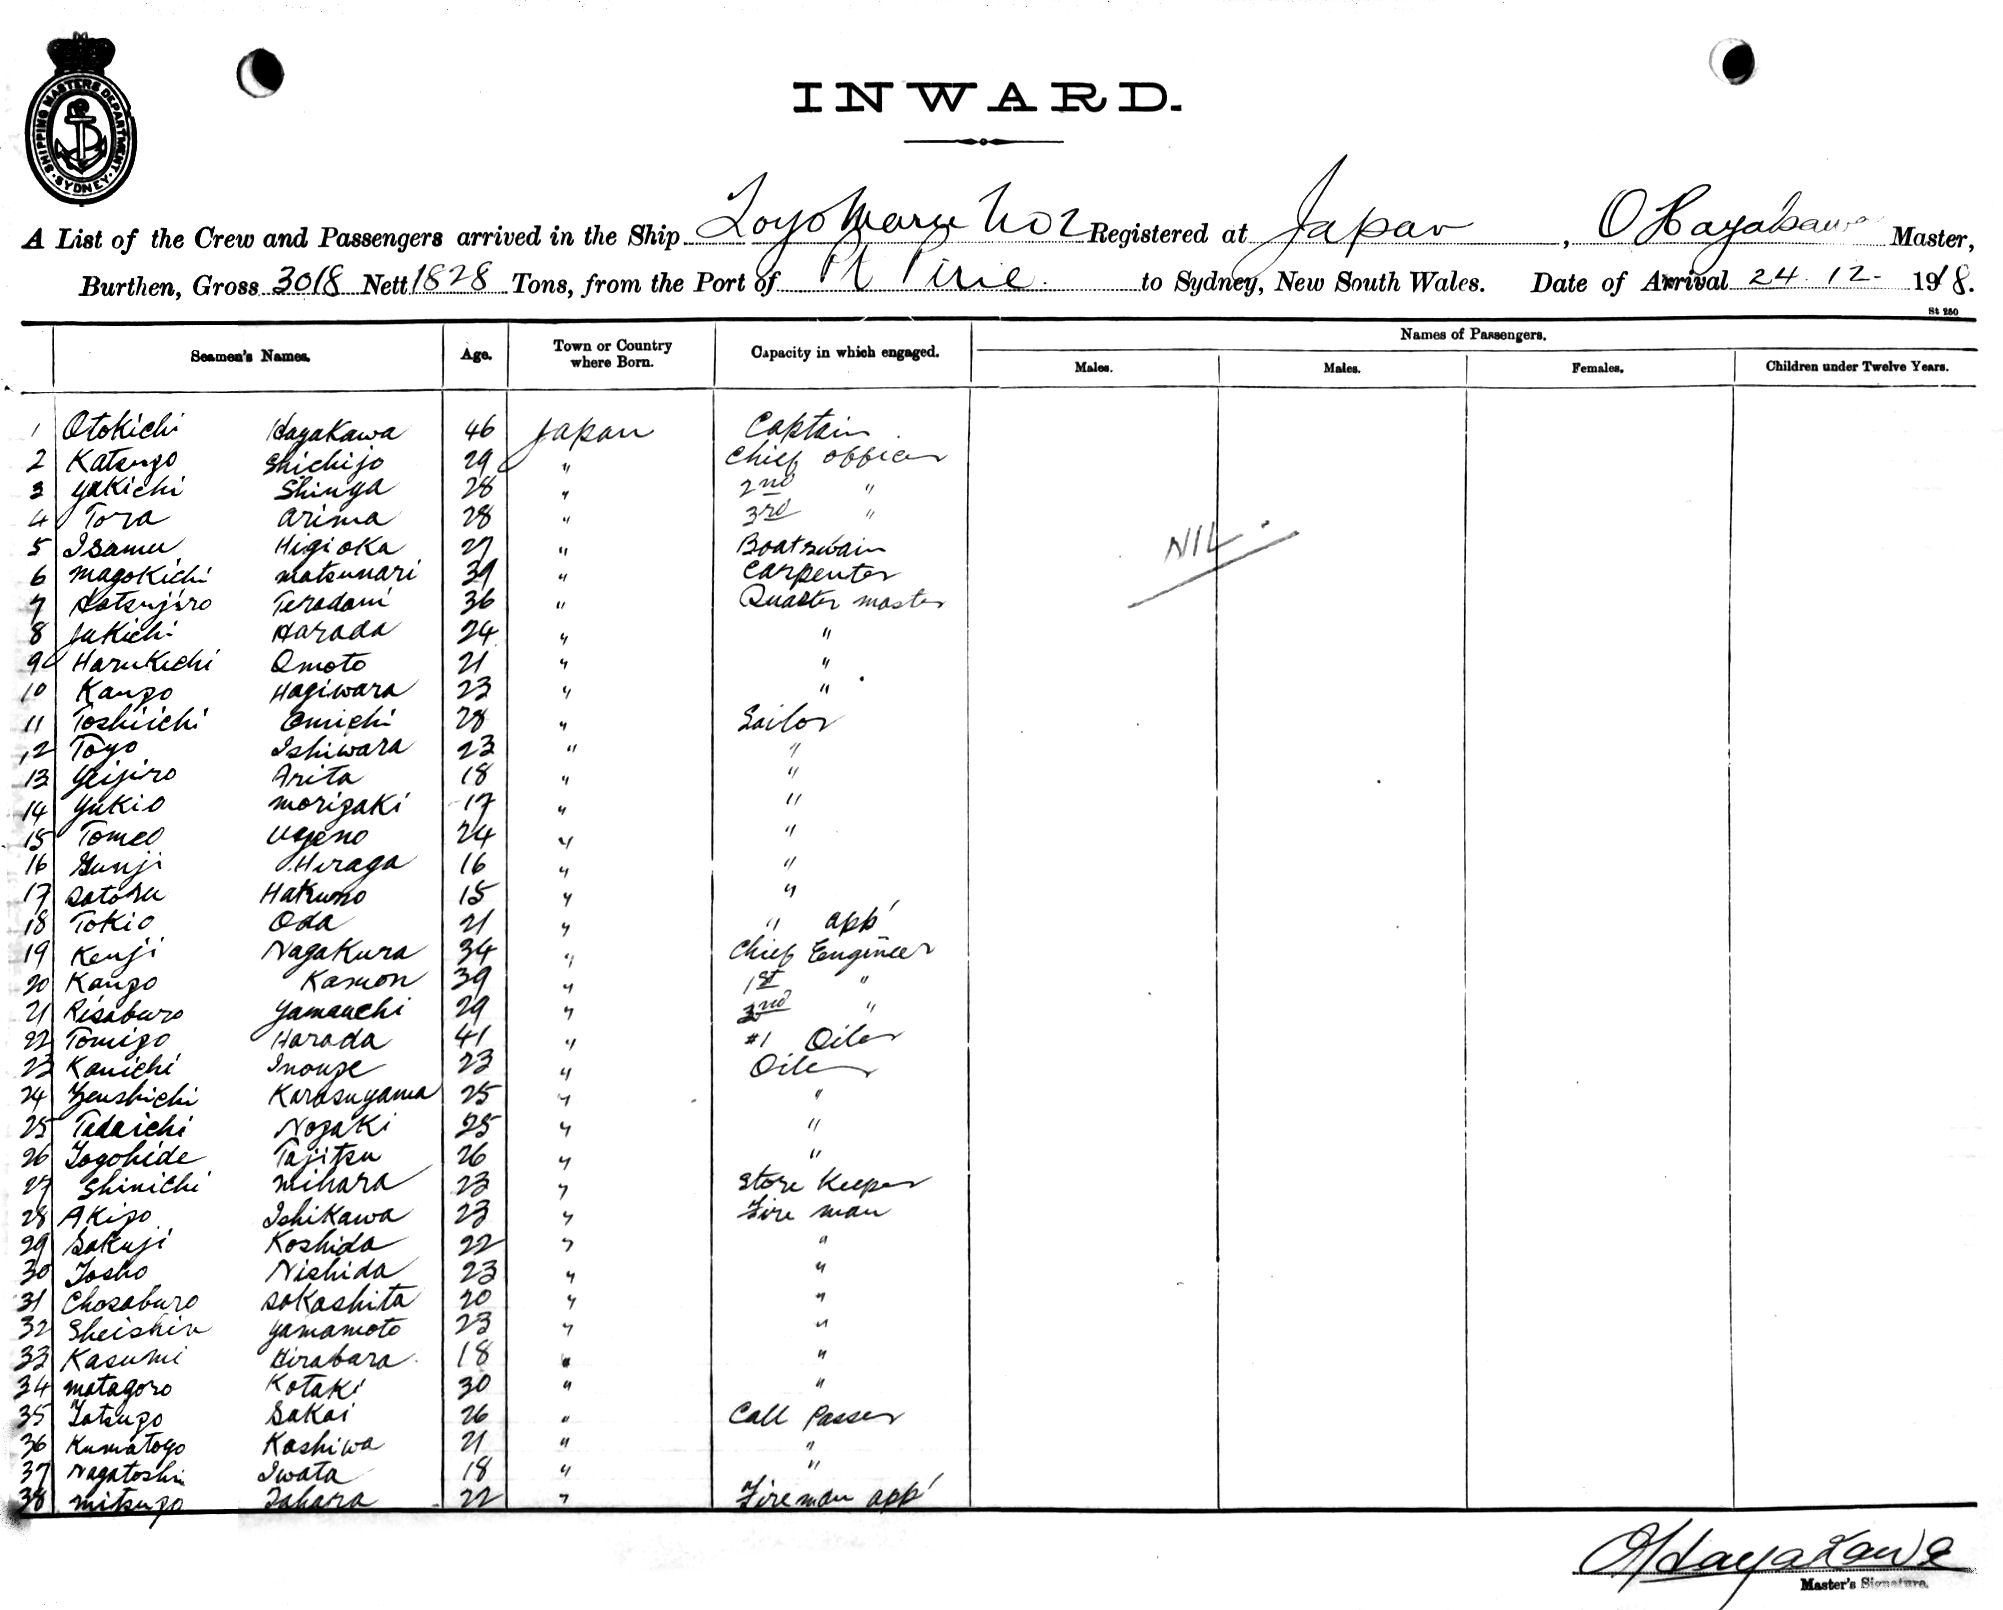 SHIPPING MASTERS DEPARTMENT
SYDNEY
INWARD.
A List of the Crew and Passengers arrived in the Ship Toyo Maru No 2 Registered at Japan, O Hayakawa Master,
Burthen, Gross 3018 Nett 1828 Tons, from the Port of Pt Pirie to Sydney, New South Wales. Date of Arrival 24.12- 1918.
St 250
Seamen's Names. Age. Town or Country where Born. Capacity in which engaged. Names of Passengers.
Males. Males. Females. Children under Twelve Years.
1 Otokichi Hayakawa 46 Japan Captain
2 Katsuzo Shichijo 29 " Chief officer
3 Yukichi Shinya 28 " 2nd "
4 Tora Arima 28 " 3rd "
5 Isamu Higioka 27 " Boatswain
NIL
6 Magokichi Matsunari 39 " Carpenter
7 Hatsujiro Teradani 36 " Quarter master
8 Jukichi Harada 24 " "
9 Harukichi Omoto 21 " "
10 Kanzo Hagiwara 23 " "
11 Toshiichi Omichi 28 " Sailor
12 Toyo Ishiwara 23 " "
13 Yeijiro Arita 18 " "
14 Yukio Morizaki 17 " "
15 Tomeo Uyeno 24 " "
16 Gunji Hiraga 16 " "
17 Satoru Hakuno 15 " "
18 Tokio Oda 21 " " app'
19 Kenji Nagakura 34 " Chief Engineer
20 Kanzo Kamon 39 " 1st "
21 Risaburo Yamauchi 29 " "
22 Tomizo Harada 41 " #1 Oiler
23 Kanichi Inouye 23 " Oiler
24 Zenshichi Karasuyama 25 " "
25 Tadaichi Nozaki 25 " "
26 Togohide Tajitsu 26 " "
27 Shinichi Mihara 23 " Store Keeper
28 Akizo Ishikawa 23 " Fire man
29 Sakuji Koshida 22 " "
30 Tosho Nishida 23 " "
31 Chosaburo Sakashita 20 " "
32 Sheishin Yamamoto 23 " "
33 Kasumi Hirabara 18 " "
34 Matagoro Kotaki 30 " "
35 Tatsuzo Sakai 26 " Call Passer
36 Kumatoyo Kashiwa 21 " "
37 Nagatoshi Iwata 18 " "
38 Mitsuzo Tahara 22 " Fireman app'
O Hayakawa
Master's Signature.